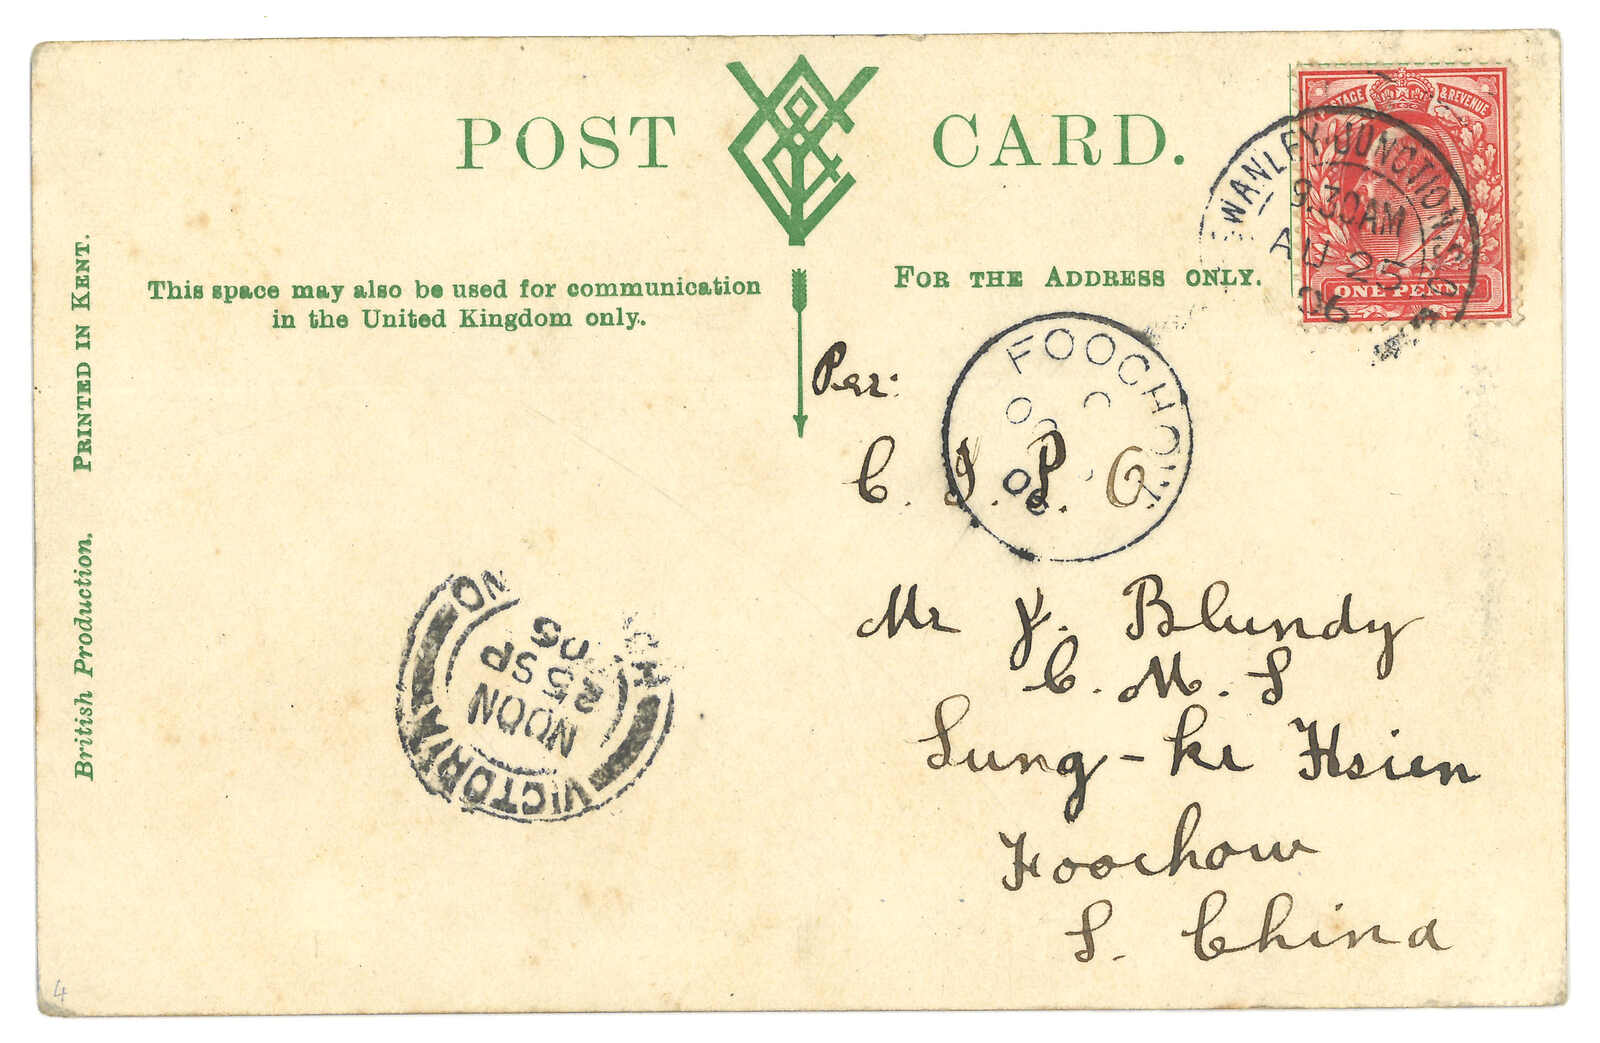 POST CARD.
This space may also be used for communication
in the United Kingdom only.
FOR THE ADDRESS ONLY.
British Production. PRINTED IN KENT.
POSTAGE & REVENUE
ONE PENNY
SWANLEY JUNCTION S.O.
9.30AM
AU 25
06
FOOCHOW
Per:
C. I. P. O
Mr J. Blundy
C. M. S
Lung-ki Hsien
Foochow
S. China
VICTORIA
HONG
NOON
25 SP
06
4